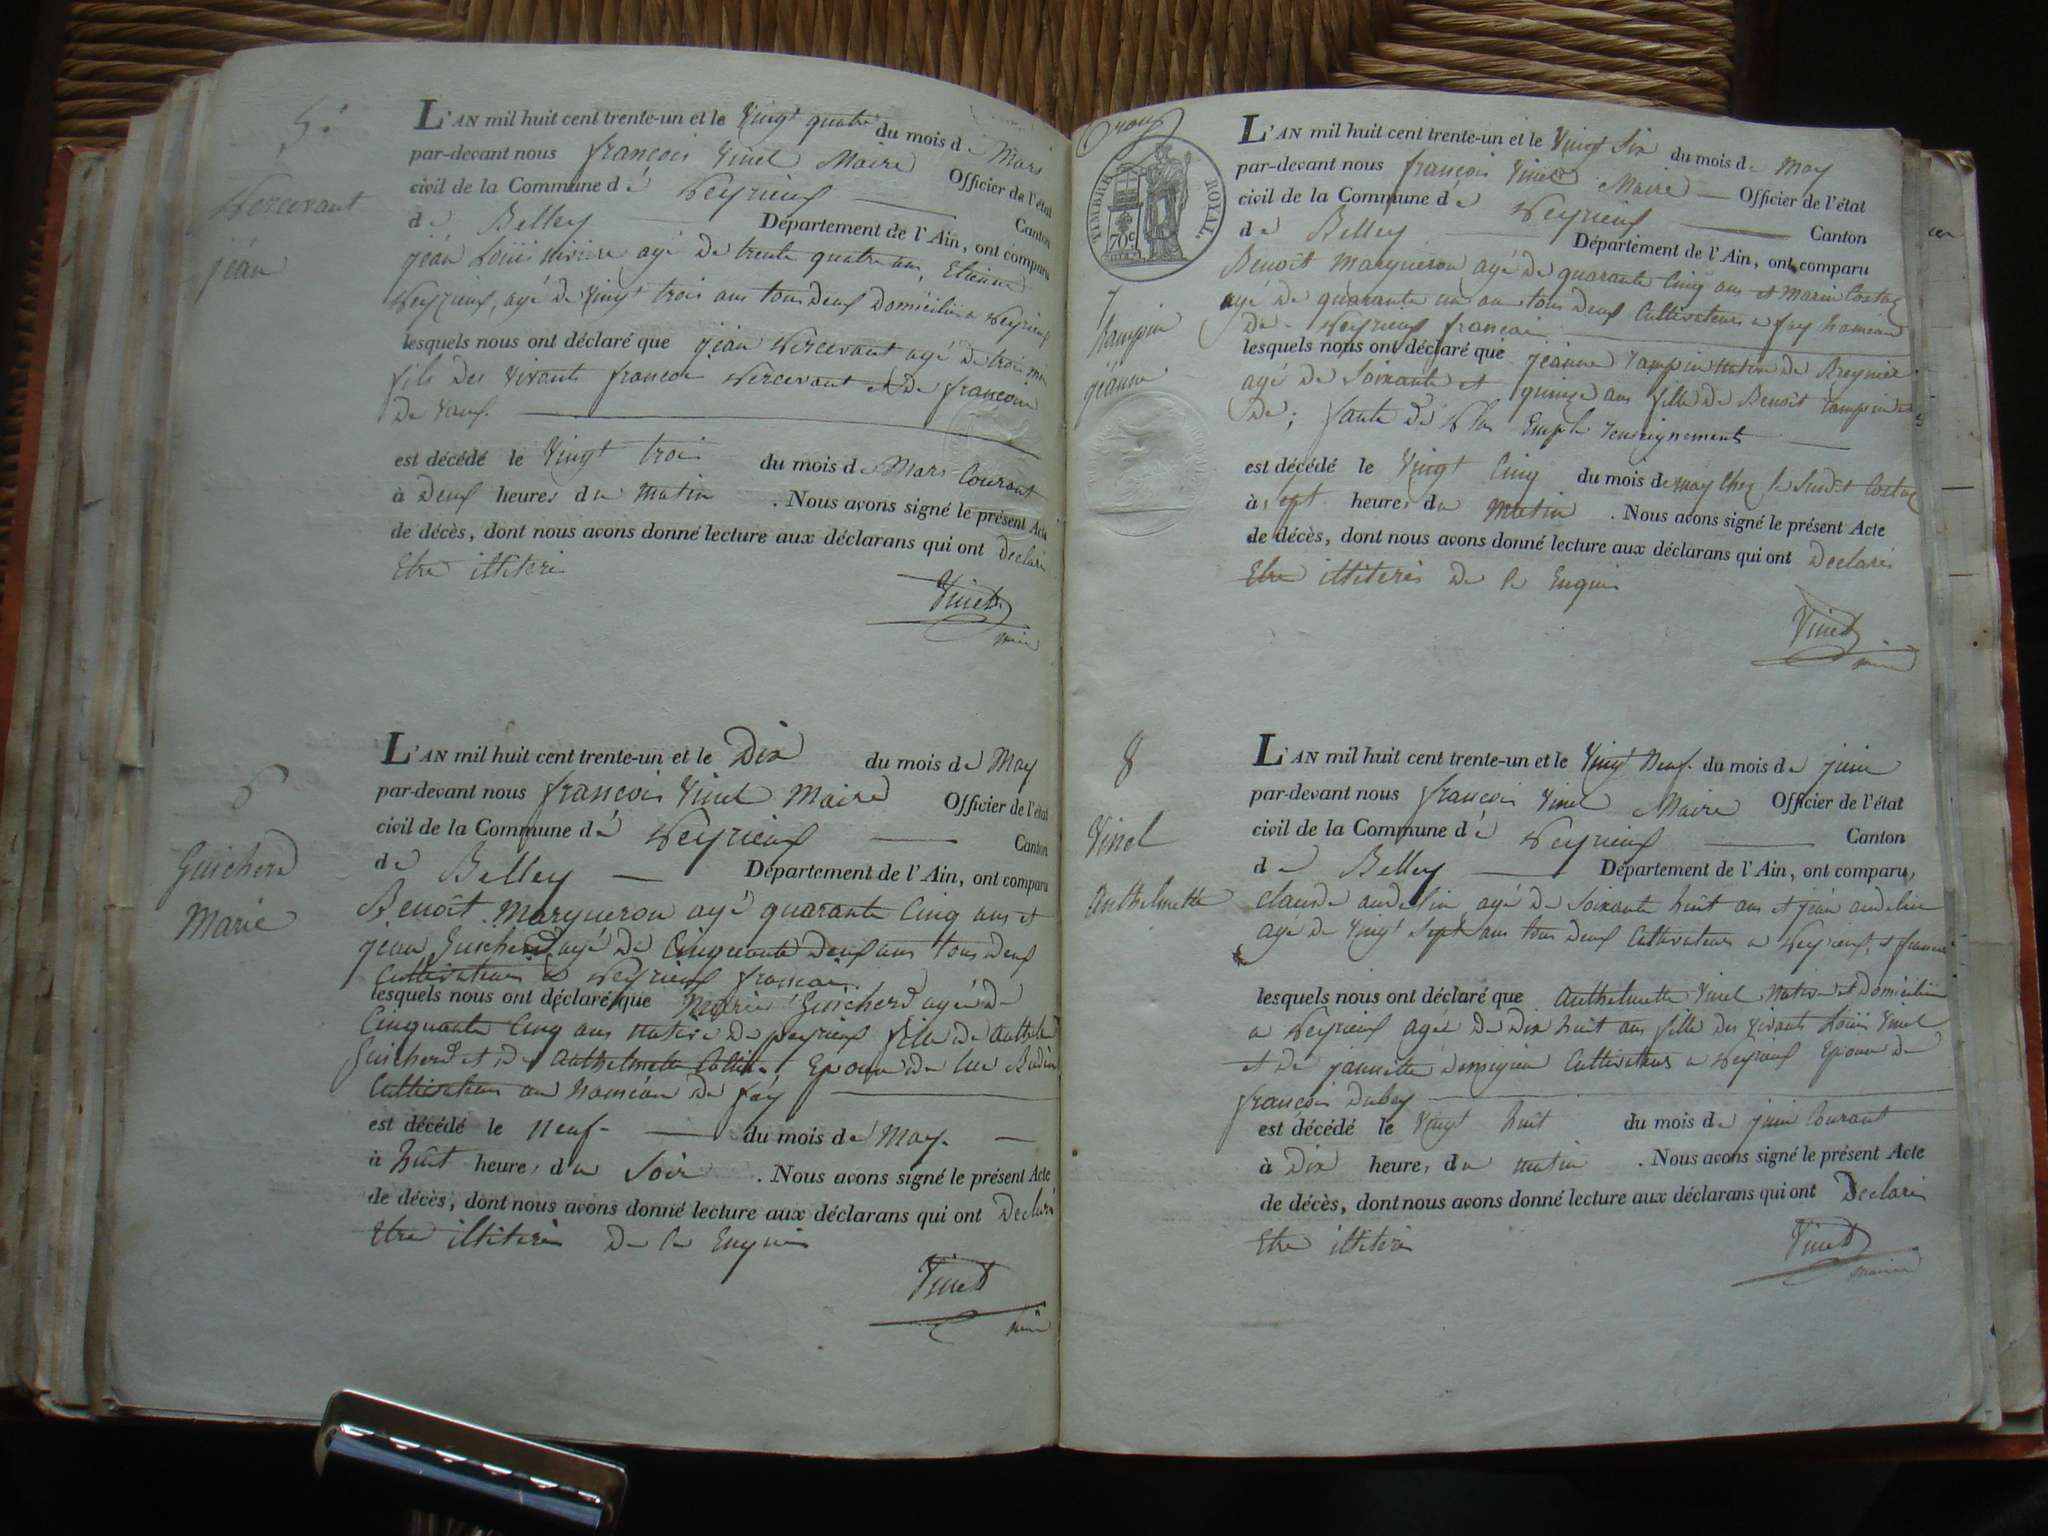 5.
Vercevant
jéan
L'AN mil huit cent trente-un et le Vingt quatre du mois de Mars
par-devant nous françois Vinet Maire Officier de l'état
civil de la Commune dé Veyrieux Canton
de Belley Département de l'Ain, ont comparu
jéan Loüis agé de trente quatre ans, Etienne
Veyrieux, agé de Vingt trois ans tous deux Domiciliés a Veyrieux
lesquels nous ont déclaré que jéan Vercevant agé de trois mois
fils des Vivants francois Vercevant et de francoise
De
est décédé le Vingt trois du mois de Mars Courant
à Deux heures du matin . Nous avons signé le présent Acte
de décès, dont nous avons donné lecture aux déclarans qui ont Declaré
Etre illiteré
Vinet
maire
6
Guicherd
Marie
L'AN mil huit cent trente-un et le Dix du mois de May
par-devant nous françois Vinet Maire Officier de l'état
civil de la Commune dé Veyrieux Canton
de Belley Département de l'Ain, ont comparu
Benoît Marqueron agé quarante Cinq ans et
jéan Guicherd agé de Cinquante deux ans tous deux
Cultivateurs a Veyrieux francais
lesquels nous ont déclaré que Marie Guicherd agée de
Cinquante Cinq ans native de peyrieux fille de
Guicherd et de Anthelmette Epouse de luc
Cultivateur au haméau de fäy
est décédé le neuf du mois de May
à huit heures du Soir . Nous avons signé le présent Acte
de décès, dont nous avons donné lecture aux déclarans qui ont Declaré
Etre illiterés De ce Enquis
Vinet
maire
TIMBRE ROYAL
70c
7
jéanne
L'AN mil huit cent trente-un et le Vingt Six du mois de May
par-devant nous françois Vinet Maire Officier de l'état
civil de la Commune dé Veyrieux Canton
de Belley Département de l'Ain, ont comparu
Benoît Marqueron agé de quarante Cinq ans et Marin Costaz
agé de quarante un ans tous deux Cultivateurs a fay haméau
de Veyrieux francais
lesquels nous ont déclaré que jéanne native de
agé de Soixante et quinze ans fille de Benoît et
de; faute de renseignements
est décédé le Vingt Cinq du mois de may Chez le Susdit Costaz
à sept heures du Matin . Nous avons signé le présent Acte
de décès, dont nous avons donné lecture aux déclarans qui ont Declarés
Etre illiterés De ce Enquis
Vinet
maire
8
Vinet
Anthelmette
L'AN mil huit cent trente-un et le Vingt Neuf du mois de juin
par-devant nous françois Vinet Maire Officier de l'état
civil de la Commune dé Veyrieux Canton
de Belley Département de l'Ain, ont comparu,
claude andelin agé de Soixante huit ans et jéan andelin
agé de Vingt Sept ans tous deux Cultivateurs a Veyrieux,
lesquels nous ont déclaré que Anthelmette Vinet Native et Domiciliée
a Veyrieux agée de Dix huit ans fille des Vivants Loüis Vinet
et de jannette Cultivateurs a Veyrieux Epouse de
françois Dubey
est décédé le Vingt huit du mois de juin Courant
à Dix heures du matin . Nous avons signé le présent Acte
de décès, dont nous avons donné lecture aux déclarans qui ont Declaré
Etre illiterés
Vinet
maire